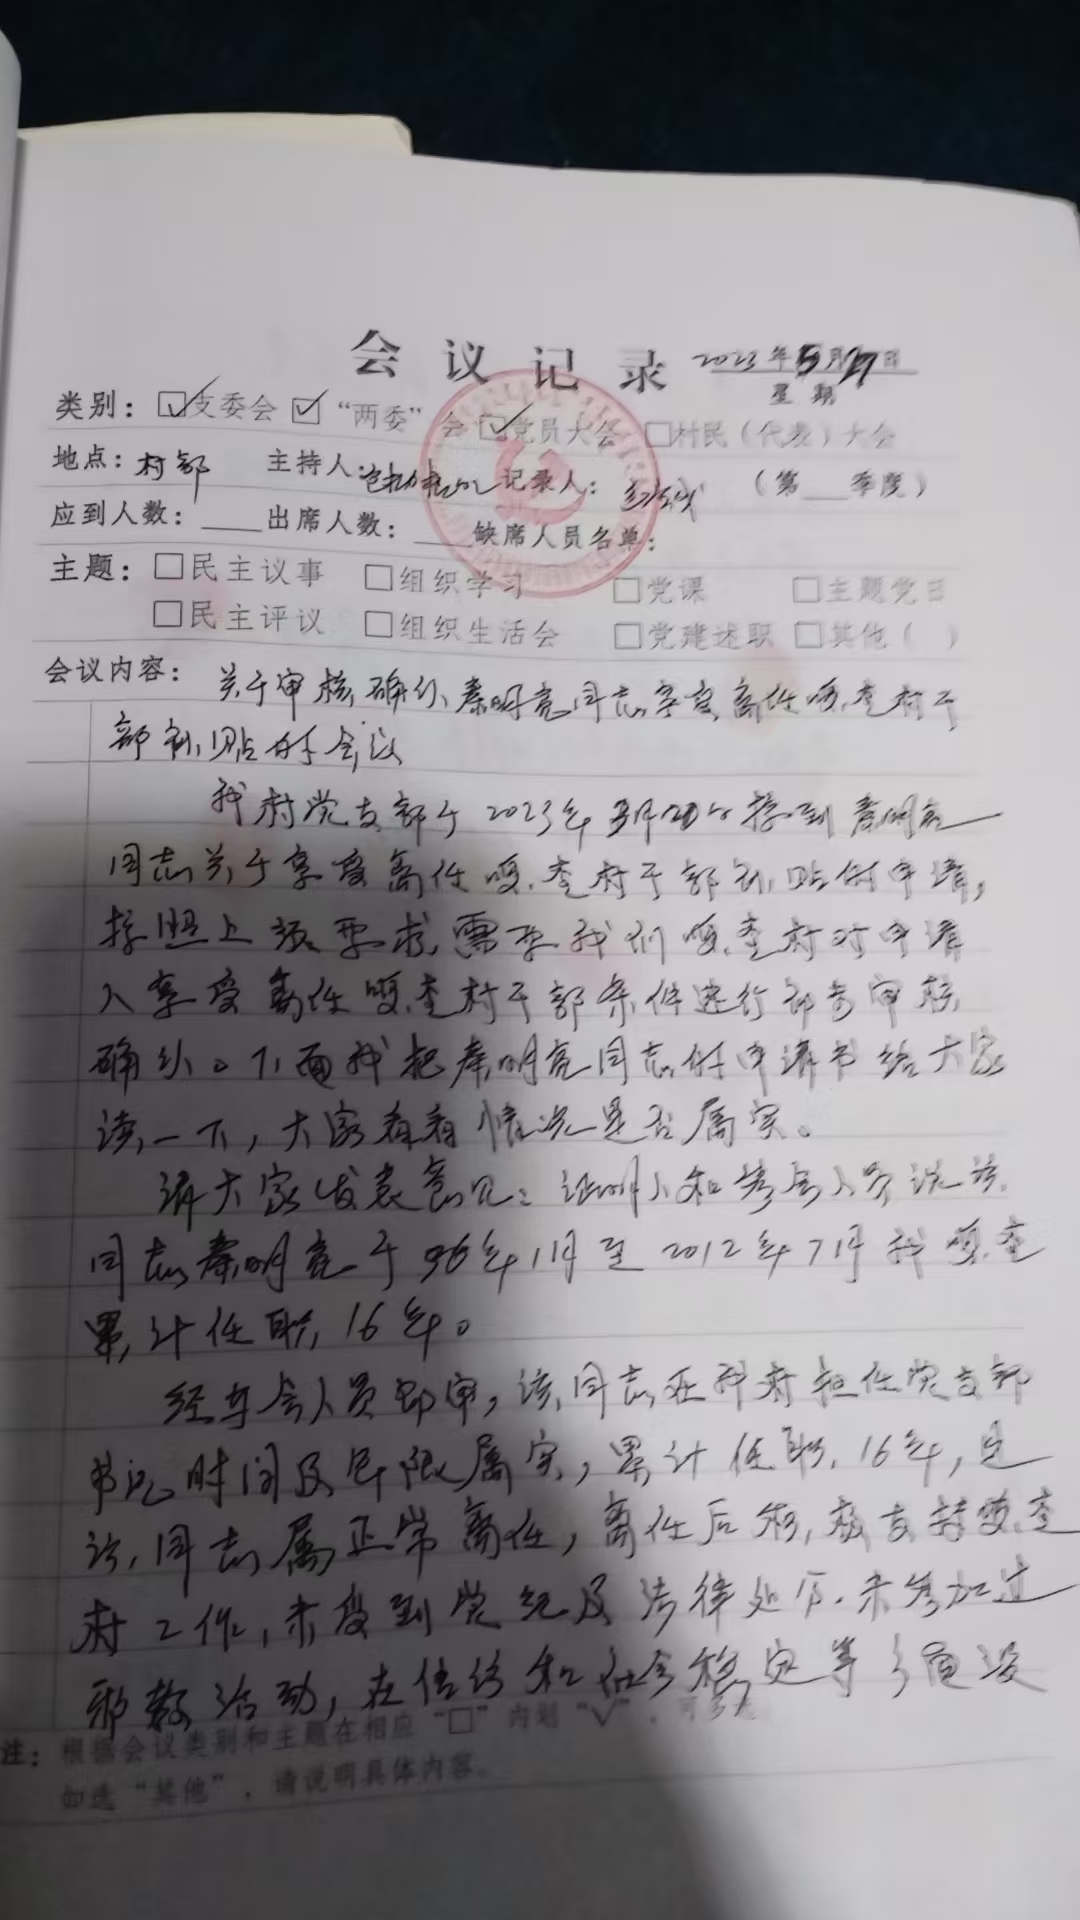 会议记录 2023年5月27日
星期
类别：☑支委会 ☑“两委”会 ☑党员大会 □村民（代表）大会
地点：村部 主持人： 记录人： （第__季度）
应到人数：____出席人数：____缺席人员名单：
主题：□民主议事 □组织学习 □党课 □主题党日
□民主评议 □组织生活会 □党建述职 □其他（ ）
会议内容：关于审核确认秦明亮同志享受离任 村干
部补贴的会议
我村党支部于2023年 月20日接到秦明亮
同志关于享受离任 村干部补贴的申请，
按照上级要求，需要我们 村对申请
人享受离任 村干部条件进行 审核
确认。下面我把秦明亮同志的申请书给大家
读一下，大家看看情况是否属实。
请大家发表意见：证明人和参会人员说该
同志秦明亮于96年1月至2012年7月我
累计任职16年。
经与会人员 审，该同志在我村担任党支部
书记时间及年限属实，累计任职16年，且
该同志属正常离任，离任后积极支持
村工作，未受到党纪及法律处分．未参加过
邪教活动，在信访和社会稳定等方面没
注：根据会议类别和主题在相应“□”内划“√”，可多
如选“其他”，请说明具体内容。